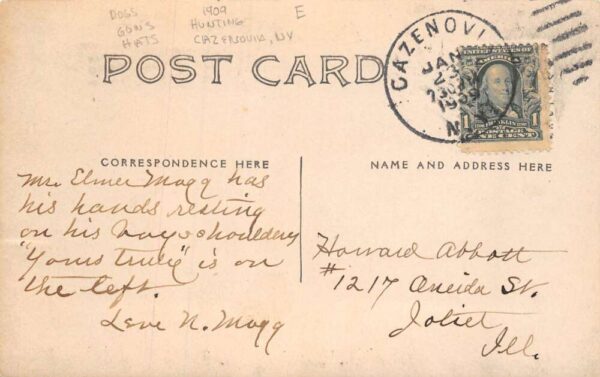 DOGS
GUNS
HATS
1909
HUNTING
CAZENOVIA, NY
E
POST CARD
CAZENOVI
JAN
1909
N.Y.
UNITED STATES OF AMERICA
FRANKLIN
1 POSTAGE 1
ONE CENT
CORRESPONDENCE HERE
NAME AND ADDRESS HERE
Mr. Elmer Mogg has
his hands resting
on his boys shoulders
"Yours truly" is on
the left.
Leve N. Mogg
Howard Abbott
#1217 Oneida St.
Joliet
Ill.